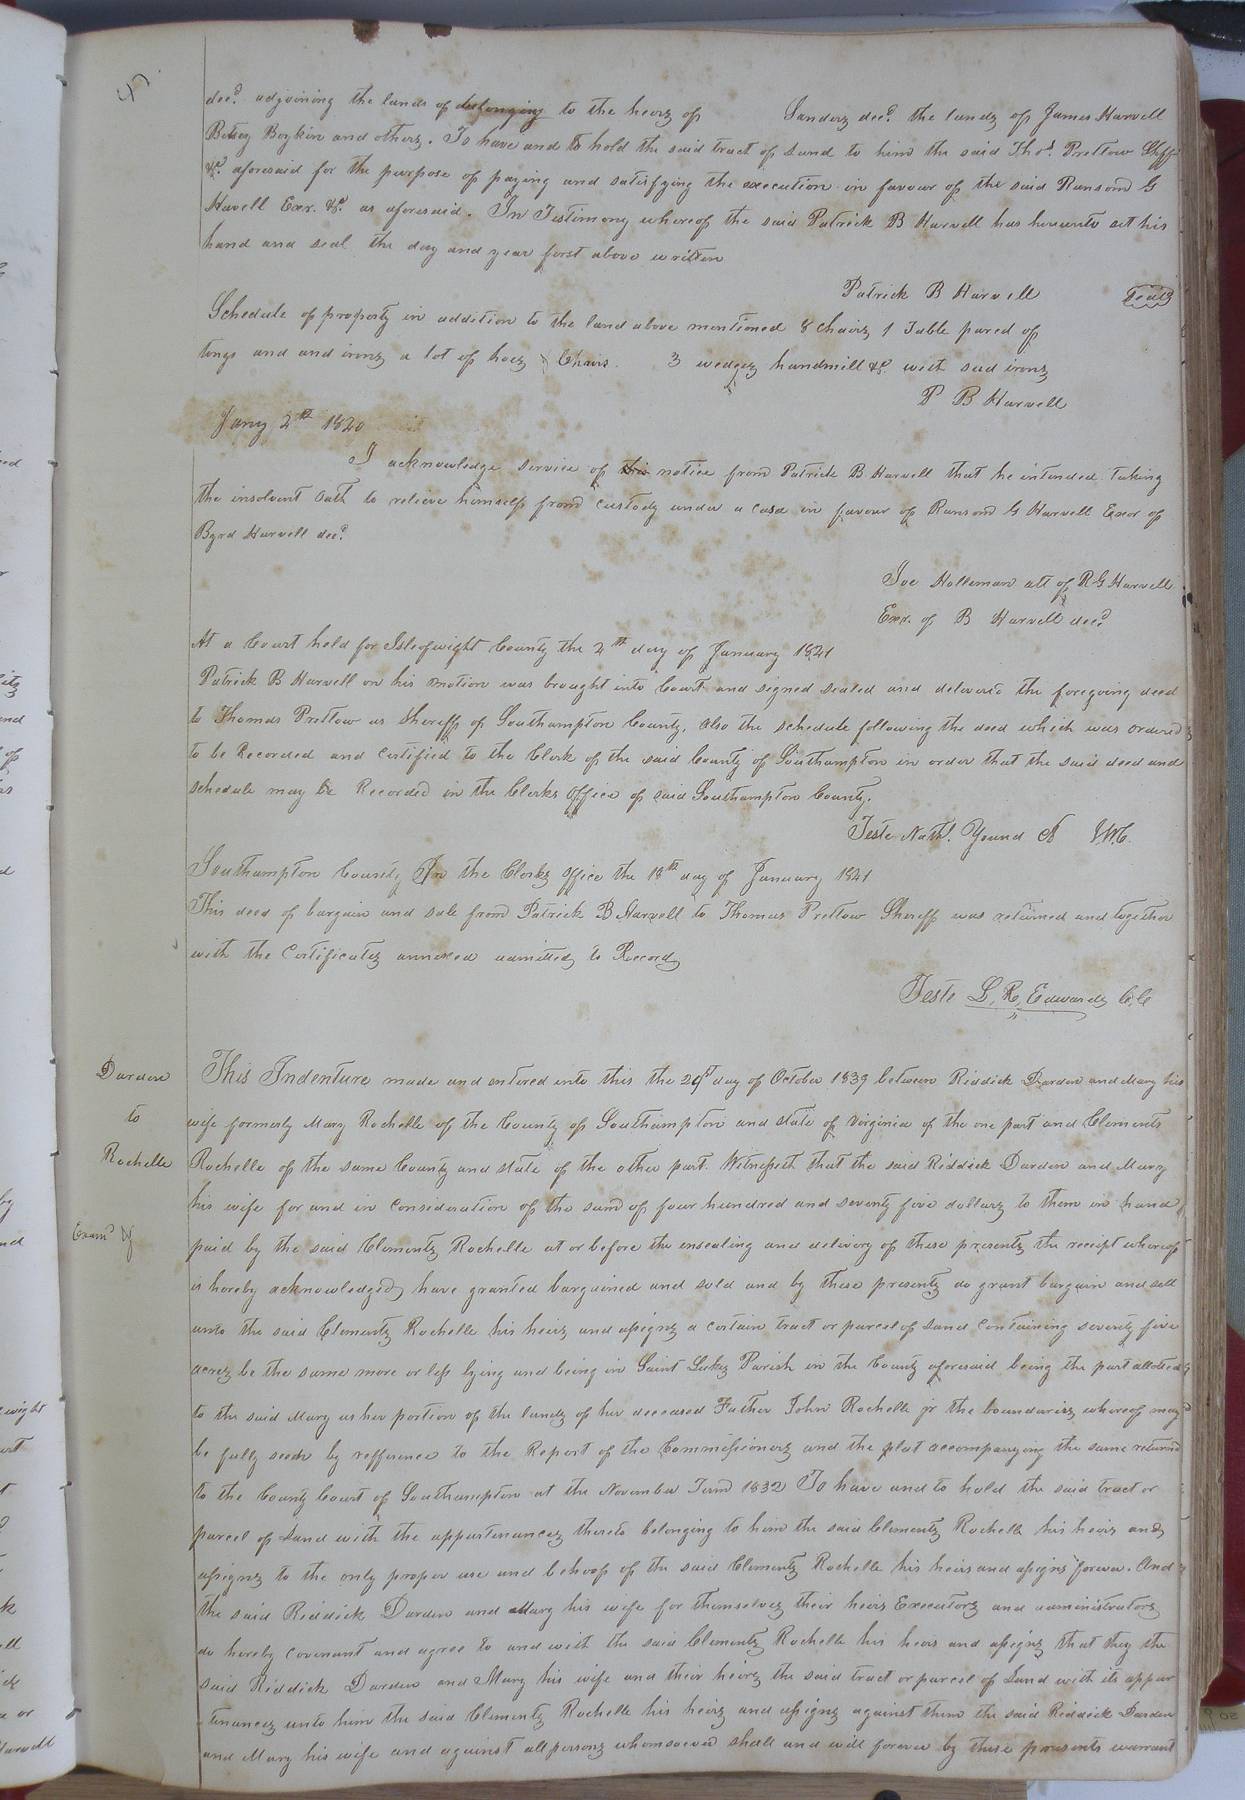 5
decd. adjoining the lands of belonging to the heirs of Sanders decd. the lands of James Harvell
Betsey Boykin and others. To have and to hold the said tract of Land to him the said Thos. Pretlow Shff
&c. aforesaid for the purpose of paying and satisfying the execution in favour of the said Ransom G
Havell Exr. &c. as aforesaid. In Testimony whereof the said Patrick B Harvell has hereunto set his
hand and seal the day and year first above written
Patrick B Harvell Seal
Schedule of property in addition to the land above mentioned 8 chairs 1 Table pared of
tongs and and irons a lot of hoes & Chairs. 3 wedges handmill &c. with sad irons
P B Harvell
Jany 2nd 1820
I acknowledge service of this notice from Patrick B Harvell that he intended taking
the insolvent oath to relieve himself from custody under a casa in favour of Ransom G Harvell Exor of
Byrd Harvell decd.
Joe Holleman att of R G Harvell
Exr. of B Harvell decd.
At a Court held for Isleofwight County the 2nd day of January 1821
Patrick B Harvell on his motion was brought into Court and signed sealed and delivered the foregoing deed
to Thomas Pretlow as Sheriff of Southampton County, also the schedule following the deed which was ordered
to be Recorded and certified to the Clerk of the said County of Southampton in order that the said deed and
schedule may be Recorded in the Clerks office of said Southampton County.
Teste Nathl. Young
Southampton County In the Clerks office the 18th day of January 1841
This deed of bargain and sale from Patrick B Harvell to Thomas Pretlow Sheriff was returned and together
with the Certificates annexed admitted to Record
Teste L, R, Edwards C,C
Darden
to
Rochelle
Examd
This Indenture made and entered into this the day of October 1839 between Riddick Darden and Mary his
wife formerly Mary Rochelle of the County of Southampton and state of Virginia of the one part and Clements
Rochelle of the same County and state of the other part. Witnesseth that the said Riddick Darden and Mary
his wife for and in consideration of the sum of four hundred and seventy five dollars to them in hand
paid by the said Clements Rochelle at or before the ensealing and delivery of these presents the receipt whereof
is hereby acknowledged have granted bargained and sold and by these presents do grant bargain and sell
unto the said Clements Rochelle his heirs and assigns a certain tract or parcel of Land containing seventy five
acres be the same more or less lying and being in Saint Lukes Parish in the County aforesaid being the part allotted
to the said Mary as her portion of the lands of her deceased Father John Rochelle jr the boundaries whereof may
be fully seen by refference to the Report of the Commissioners and the plat accompanying the same returnd
to the County Court of Southampton at the November Term 1832 To have and to hold the said tract or
parcel of Land with the appurtenances thereto belonging to him the said Clements Rochelle his heirs and
assigns to the only proper use and behoof of the said Clements Rochelle his heirs and assigns forever. And
the said Riddick Darden and Mary his wife for themselves their heirs Executors and administrators
do hereby covenant and agree to and with the said Clements Rochelle his heirs and assigns that they the
said Riddick Darden and Mary his wife and their heirs the said tract or parcel of Land with its appur
tenances unto him the said Clements Rochelle his heirs and assigns against them the said Riddick Darden
and Mary his wife and against all persons whomsoever shall and will forever by these presents warrant